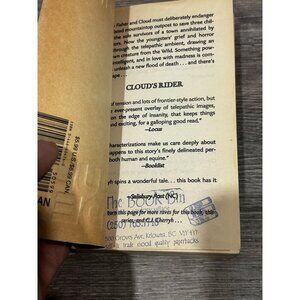 Fisher and Cloud must deliberately endanger
lated mountaintop outpost to save three chil-
sole survivors of a town annihilated by
Now the youngsters' grief and horror
through the telepathic ambient, drawing an
cream creature from the Wild. Something pow-
intelligent, and in love with madness is com-
unleash a new flood of death . . . and there's
ape . . .
CLOUD'S RIDER
of tension and lots of frontier-style action, but
ever-present overlay of telepathic images,
on the edge of insanity, that keeps things
and exciting, for a galloping good read."
—Locus
characterizations make us care deeply about
happens to this story's finely delineated per-
both human and equine."
—Booklist
yh spins a wonderful tale. . . this book has it
—Salisbury Post (NC)
The BOOK Bin
turn this page for more raves for this book, the
series, and C.J. Cherryh . . .
Kelowna, BC
trade good quality paperbacks